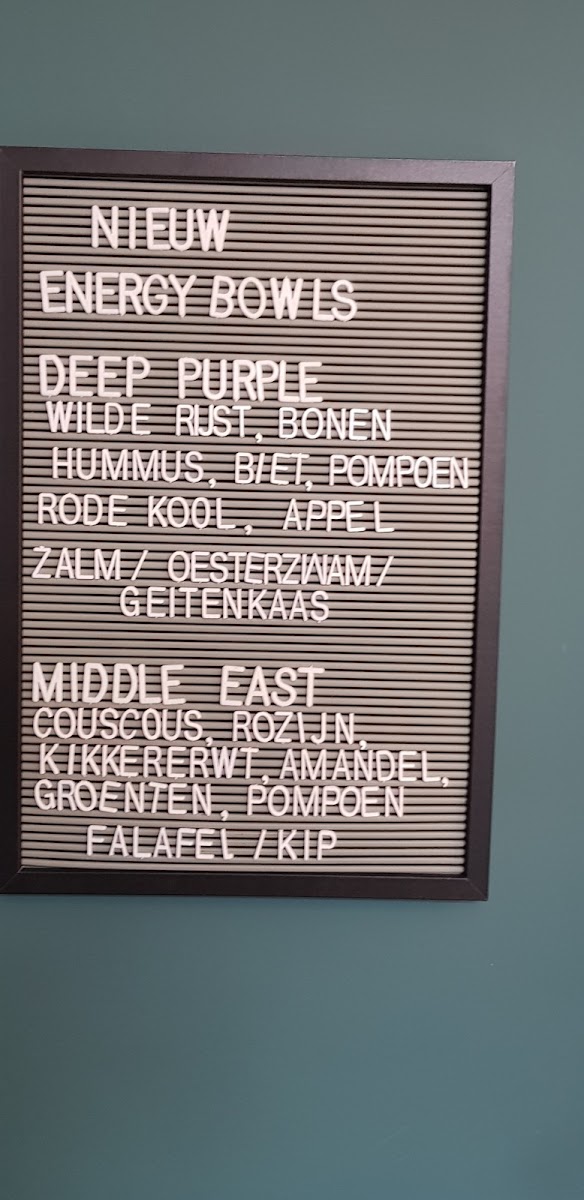 NIEUW
ENERGY BOWLS
DEEP PURPLE
WILDE RIJST, BONEN
HUMMUS, BIET, POMPOEN
RODE KOOL, APPEL
ZALM/ OESTERZWAM/
GEITENKAAS
MIDDLE EAST
COUSCOUS, ROZIJN,
KIKKERERWT, AMANDEL,
GROENTEN, POMPOEN
FALAFEL /KIP